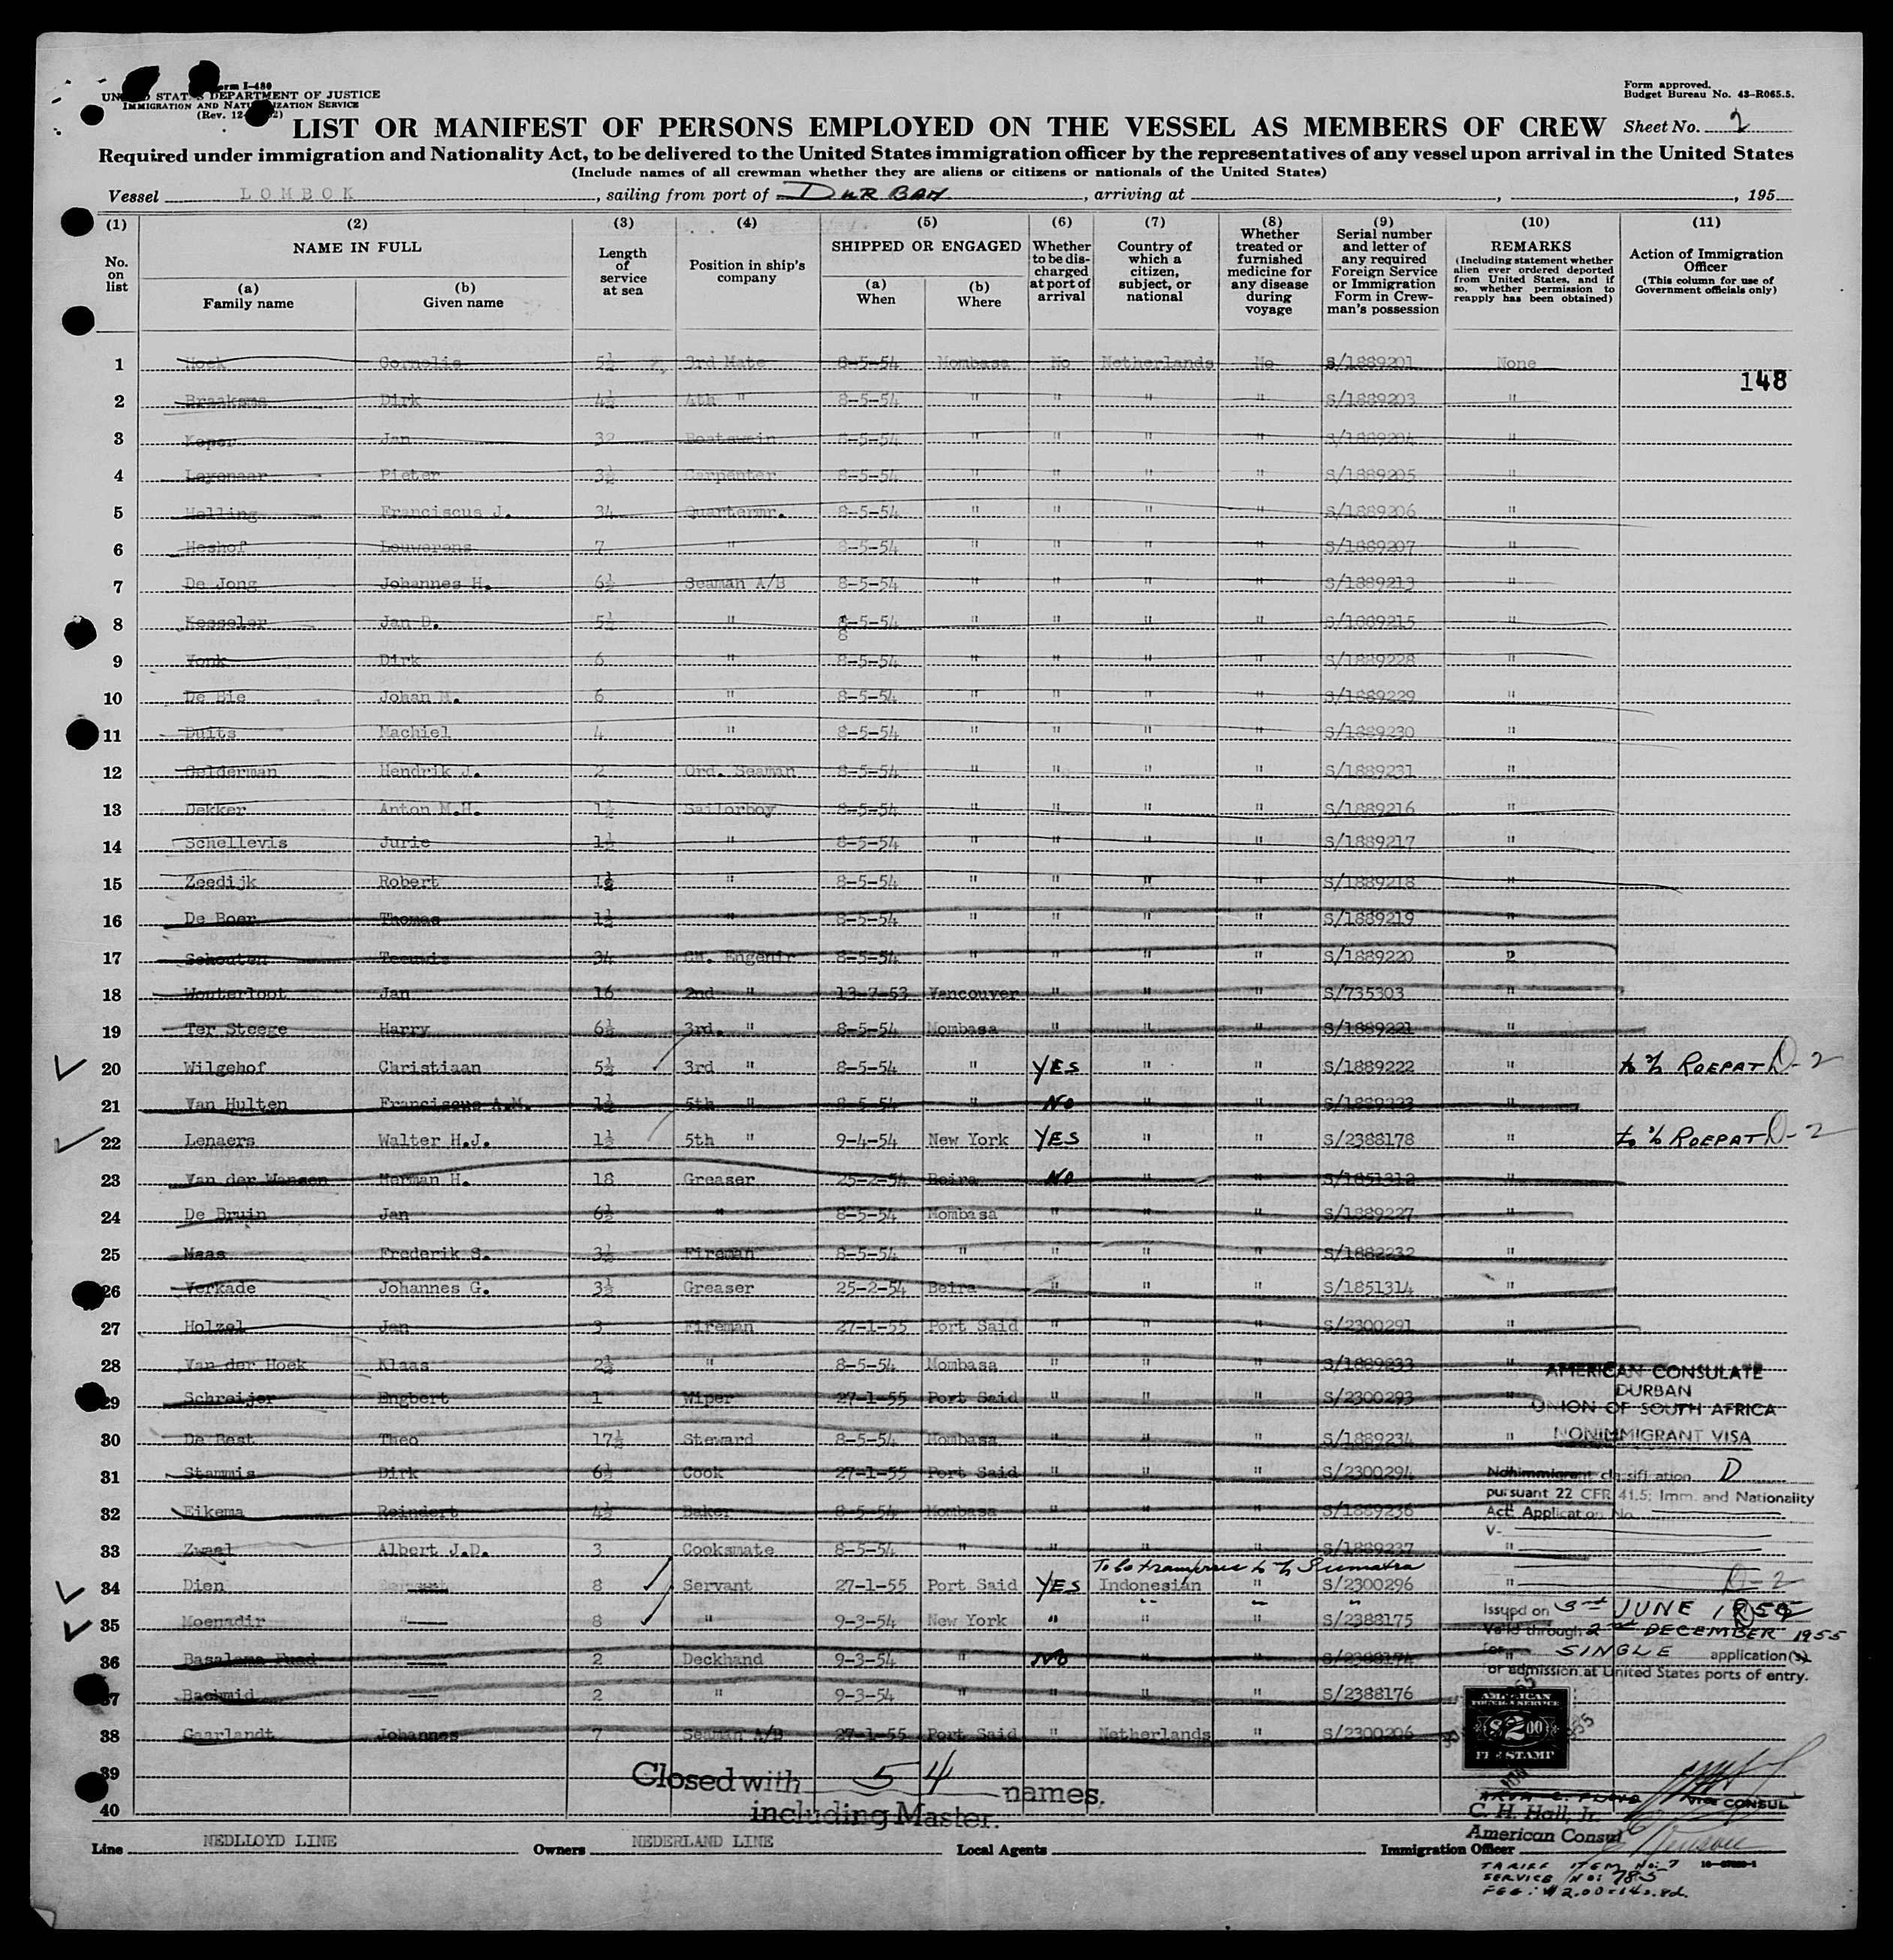 Form I-480
UNITED STATES DEPARTMENT OF JUSTICE
IMMIGRATION AND NATURALIZATION SERVICE
(Rev. 12-
Form approved.
Budget Bureau No. 43-R065.5.
LIST OR MANIFEST OF PERSONS EMPLOYED ON THE VESSEL AS MEMBERS OF CREW Sheet No. 2
Required under immigration and Nationality Act, to be delivered to the United States immigration officer by the representatives of any vessel upon arrival in the United States
(Include names of all crewman whether they are aliens or citizens or nationals of the United States)
Vessel LOMBOK, sailing from port of DURBAN, arriving at , , 195
(1) (2) (3) (4) (5) (6) (7) (8) (9) (10) (11)
No. on list
NAME IN FULL
(a) Family name
(b) Given name
Length of service at sea
Position in ship's company
SHIPPED OR ENGAGED
(a) When
(b) Where
Whether to be discharged at port of arrival
Country of which a citizen, subject, or national
Whether treated or furnished medicine for any disease during voyage
Serial number and letter of any required Foreign Service or Immigration Form in Crewman's possession
REMARKS
(Including statement whether alien ever ordered deported from United States, and if so, whether permission to reapply has been obtained)
Action of Immigration Officer
(This column for use of Government officials only)
1 Hoek Cornelis 5½ 3rd Mate 8-5-54 Mombasa No Netherlands No S/1889201 None
148
2 Braaksma Dirk 4½ 4th " 8-5-54 " " " " S/1889203 "
3 Koper Jan 32 Boatswain 8-5-54 " " " " S/1889204 "
4 Layenaar Pieter 3½ Carpenter 8-5-54 " " " " S/1889205 "
5 Helling Franciscus J. 34 Quartermr. 8-5-54 " " " " S/1889206 "
6 Heshof Louwerens 7 " 8-5-54 " " " " S/1889207 "
7 De Jong Johannes H. 6½ Seaman A/B 8-5-54 " " " " S/1889213 "
8 Kesseler Jan D. 5½ " 8-5-54 " " " " S/1889215 "
9 Vonk Dirk 6 " 8-5-54 " " " " S/1889228 "
10 De Bie Johan M. 6 " 8-5-54 " " " " S/1889229 "
11 Duits Machiel 4 " 8-5-54 " " " " S/1889230 "
12 Gelderman Hendrik J. 2 Ord. Seaman 8-5-54 " " " " S/1889231 "
13 Dekker Anton M.H. 1½ Sailorboy 8-5-54 " " " " S/1889216 "
14 Schellevis Jurie 1½ " 8-5-54 " " " " S/1889217 "
15 Zeedijk Robert 1½ " 8-5-54 " " " " S/1889218 "
16 De Boer Thomas 1½ " 8-5-54 " " " " S/1889219 "
17 Schouten Teeuwis 34 Ch. Engenir 8-5-54 " " " " S/1889220 "
18 Wouterloot Jan 16 2nd " 13-7-53 Vancouver " " " S/735303 "
19 Ter Steege Harry 6½ 3rd. " 8-5-54 Mombasa " " " S/1889221 "
20 Wilgehof Christiaan 5½ 3rd " 8-5-54 " YES " " S/1889222 " ROEPAT D-2
21 Van Hulten Franciscus A.M. 1½ 5th " 8-5-54 " No " " S/1889223 "
22 Lenaers Walter H.J. 1½ 5th " 9-4-54 New York YES " " S/2388178 " ROEPAT D-2
23 Van der Mansen Herman H. 18 Greaser 25-2-54 Beira No " " S/1851312 "
24 De Bruin Jan 6½ " 8-5-54 Mombasa " " " S/1889227 "
25 Maas Frederik S. 3½ Fireman 8-5-54 " " " " S/1882232 "
26 Verkade Johannes G. 3½ Greaser 25-2-54 Beira " " " S/1851314 "
27 Holzel Jan 3 Fireman 27-1-55 Port Said " " " S/2300291 "
28 Van der Hoek Klaas 2½ " 8-5-54 Mombasa " " " S/1889233 "
29 Schreijer Engbert 1 Wiper 27-1-55 Port Said " " " S/2300293 "
30 De Best Theo 17½ Steward 8-5-54 Mombasa " " " S/1889234 "
31 Stammis Dirk 6½ Cook 27-1-55 Port Said " " " S/2300294
32 Eikema Reindert 4½ Baker 8-5-54 Mombasa " " " S/1889236
33 Zwaal Albert J.D. 3 Cooksmate 8-5-54 " " S/1889237 "
To be transferred to Sumatra
34 Dien 8 Servant 27-1-55 Port Said YES Indonesian " S/2300296 " D-2
35 Moenadir " 8 " 9-3-54 New York " " " S/2388175
36 Basalama Fuad 2 Deckhand 9-3-54 " No " " S/2388174 "
37 Bachmid 2 " 9-3-54 " " " " S/2388176
38 Gaarlandt Johannes 7 Seaman A/B 27-1-55 Port Said " Netherlands " S/2300206
39
40
AMERICAN CONSULATE
DURBAN
UNION OF SOUTH AFRICA
NONIMMIGRANT VISA
Nonimmigrant classification D
pursuant 22 CFR 41.5; Imm. and Nationality
Act. Application No.
V-
Issued on 3rd JUNE 1955
Valid through 2nd DECEMBER 1955
for SINGLE application(s)
for admission at United States ports of entry.
AMERICAN
FOREIGN SERVICE
$2.00
FEE STAMP
VICE CONSUL
C. H. Hall, Jr.
American Consul
Closed with 54 names.
including Master.
Line NEDLLOYD LINE Owners NEDERLAND LINE Local Agents Immigration Officer
TARIFF ITEM No: 7
SERVICE No: 785
FEE: $2.00